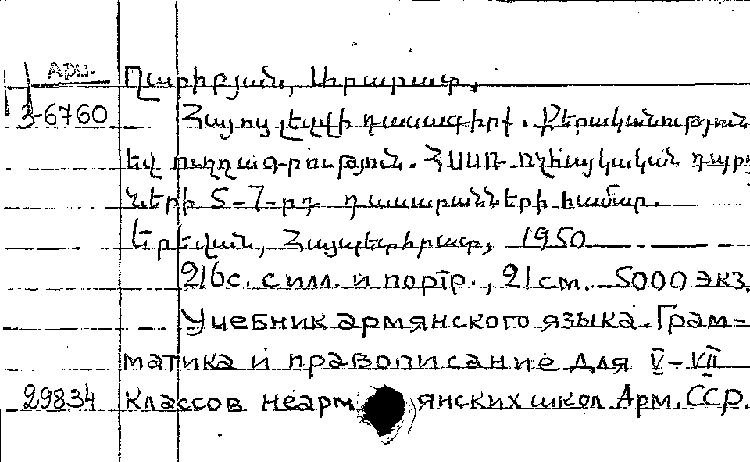 Арм.
Ղարիբյան, Արարատ.
3-6760 Հայոց լեզվի դասագիրք. Քերականություն
եվ ուղղագրություն. ՀՍՍՌ ոչհայկական դպրոց
ների 5-7-րդ դասարանների համար.
Երեվան, Հայպետհրատ, 1950
216с. с илл. и портр., 21см. 5000 экз.
Учебник армянского языка. Грам-
матика и правописание для V-VII
29834 классов неарм янских школ Арм. ССР.